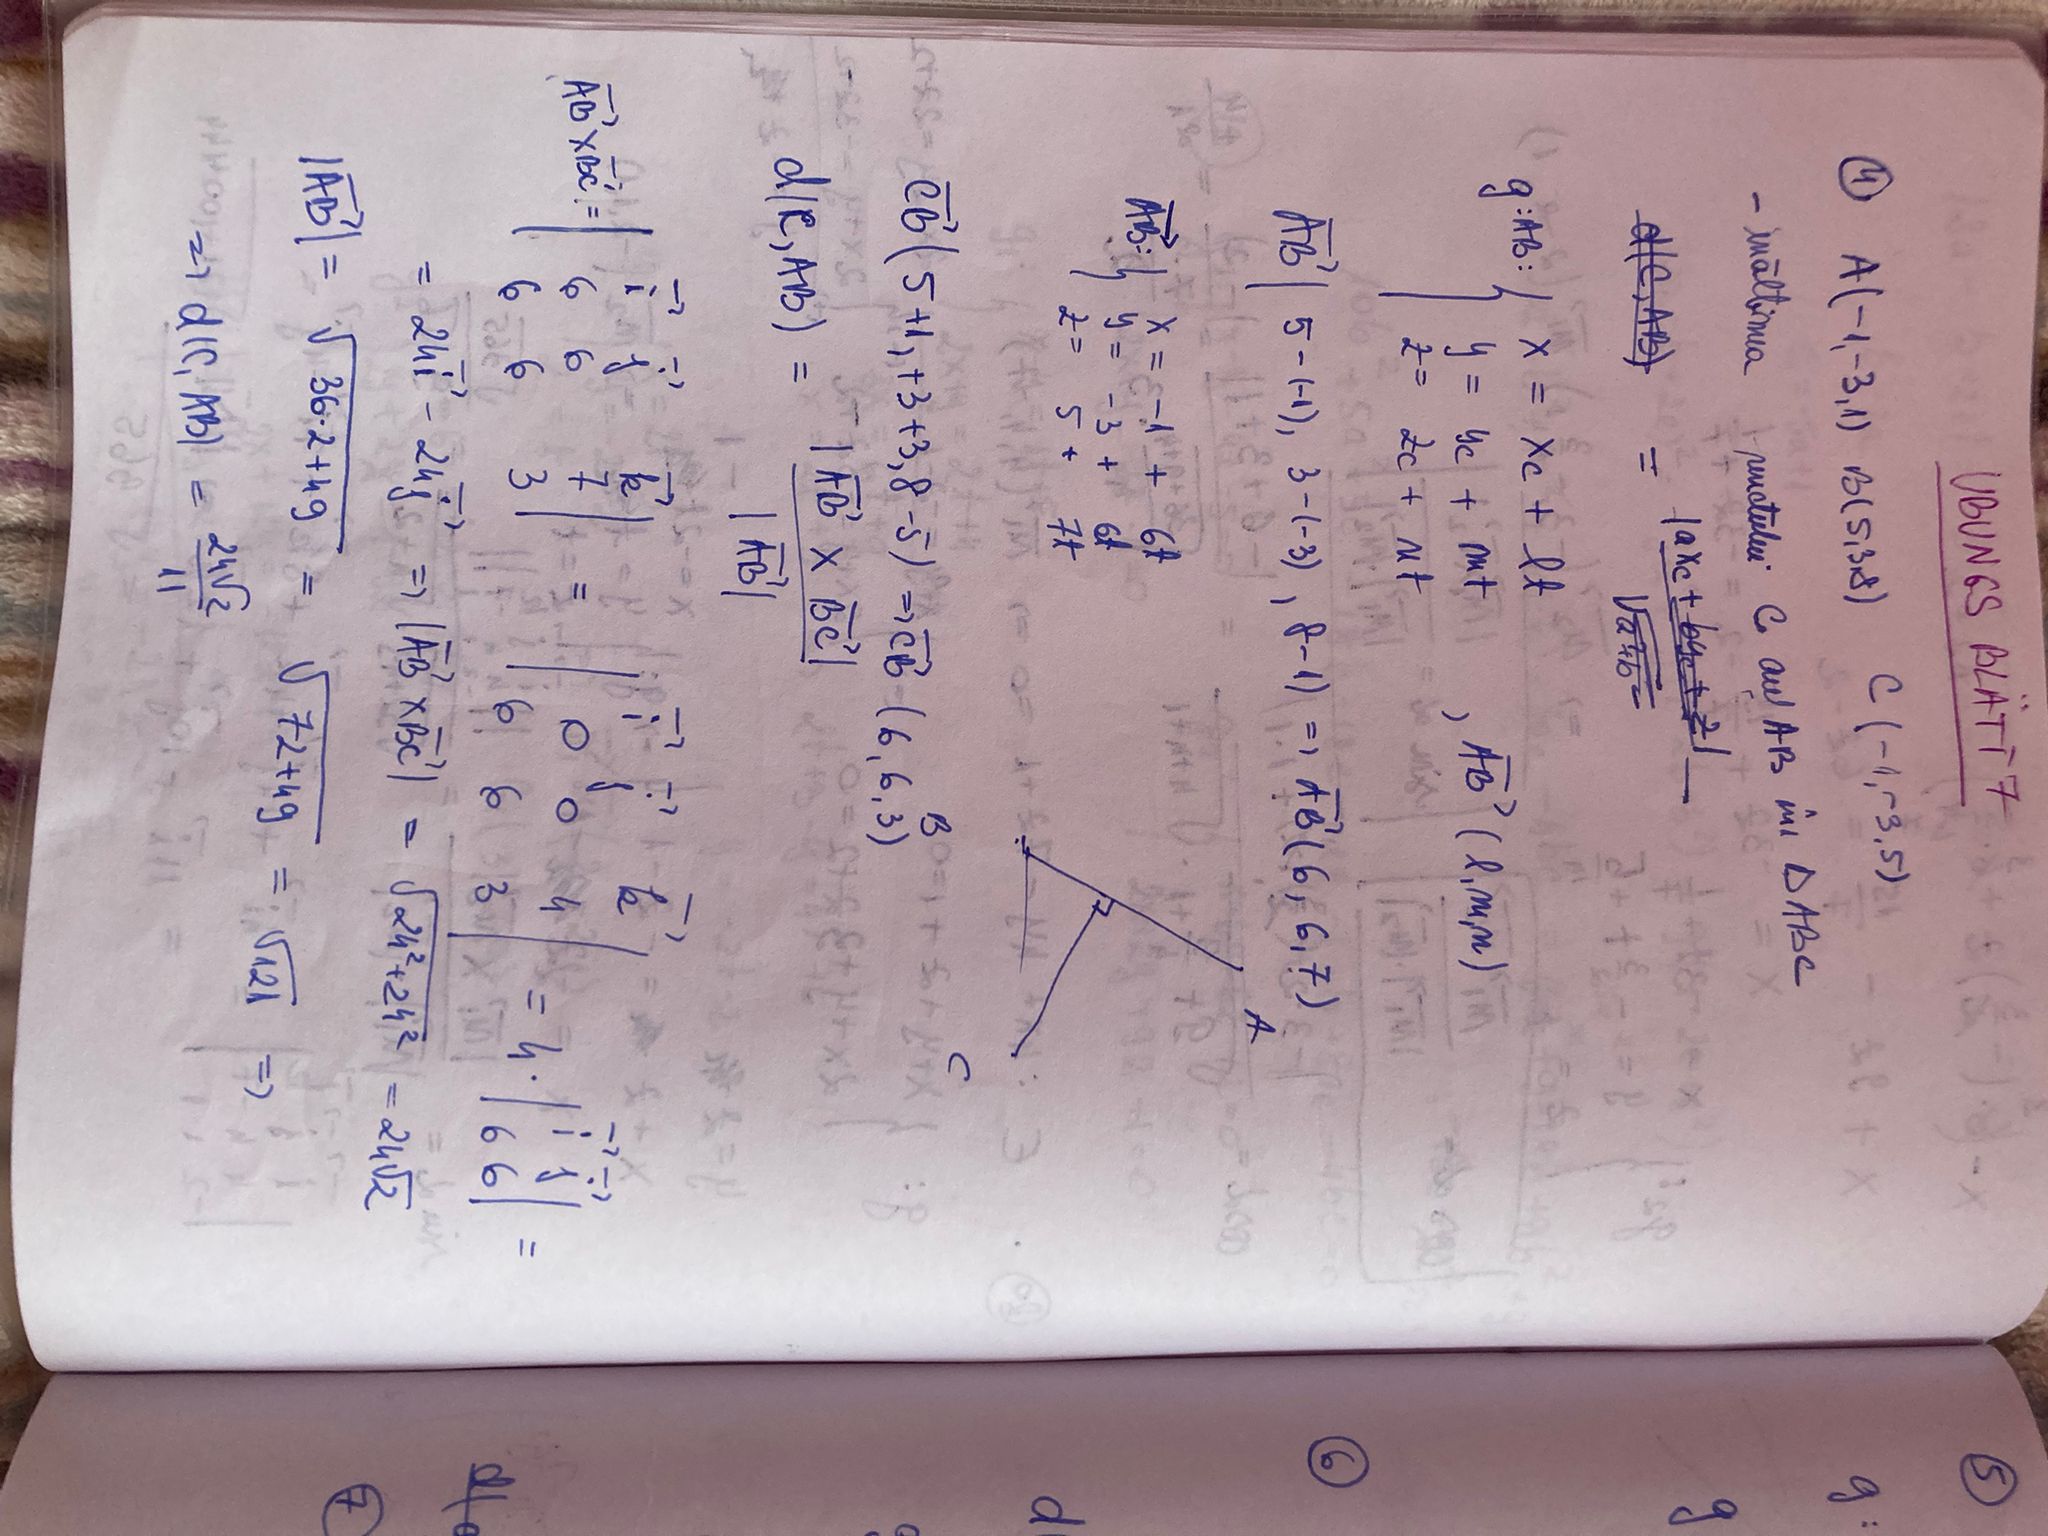 UBUNGS BLÄTT 7
④ A(-1,-3,1) B(5,3,8) C(-1,-3,5)
- înălțimea punctului C al AB în ΔABC
d(C,AB) = |axc + byc + z| / √a²+b²
g:AB: { x = xc + lt
y = yc + mt , AB→ (l,m,n)
z = zc + nt
AB→( 5-(-1), 3-(-3), 8-1) => AB→(6, 6, 7)
A
AB→: { x = -1 + 6t
y = -3 + 6t
z = 5 + 7t
C
B
CB→(5+1, +3+3, 8-5) => CB→ (6,6,3)
d(C,AB) = |AB→ × BC→| / |AB→|
AB→×BC→ = | i→ j→ k→ | = | i→ j→ k→ | = 4· | i→ j→ | =
6 6 7 0 0 4 6 6
6 6 3 6 6 3
= 24i→ - 24j→ => |AB→×BC→| = √24²+24² = 24√2
|AB→| = √36·2+49 = √72+49 = √121 =>
=> d(C, AB) = 24√2 / 11
5
g:
g
6
7